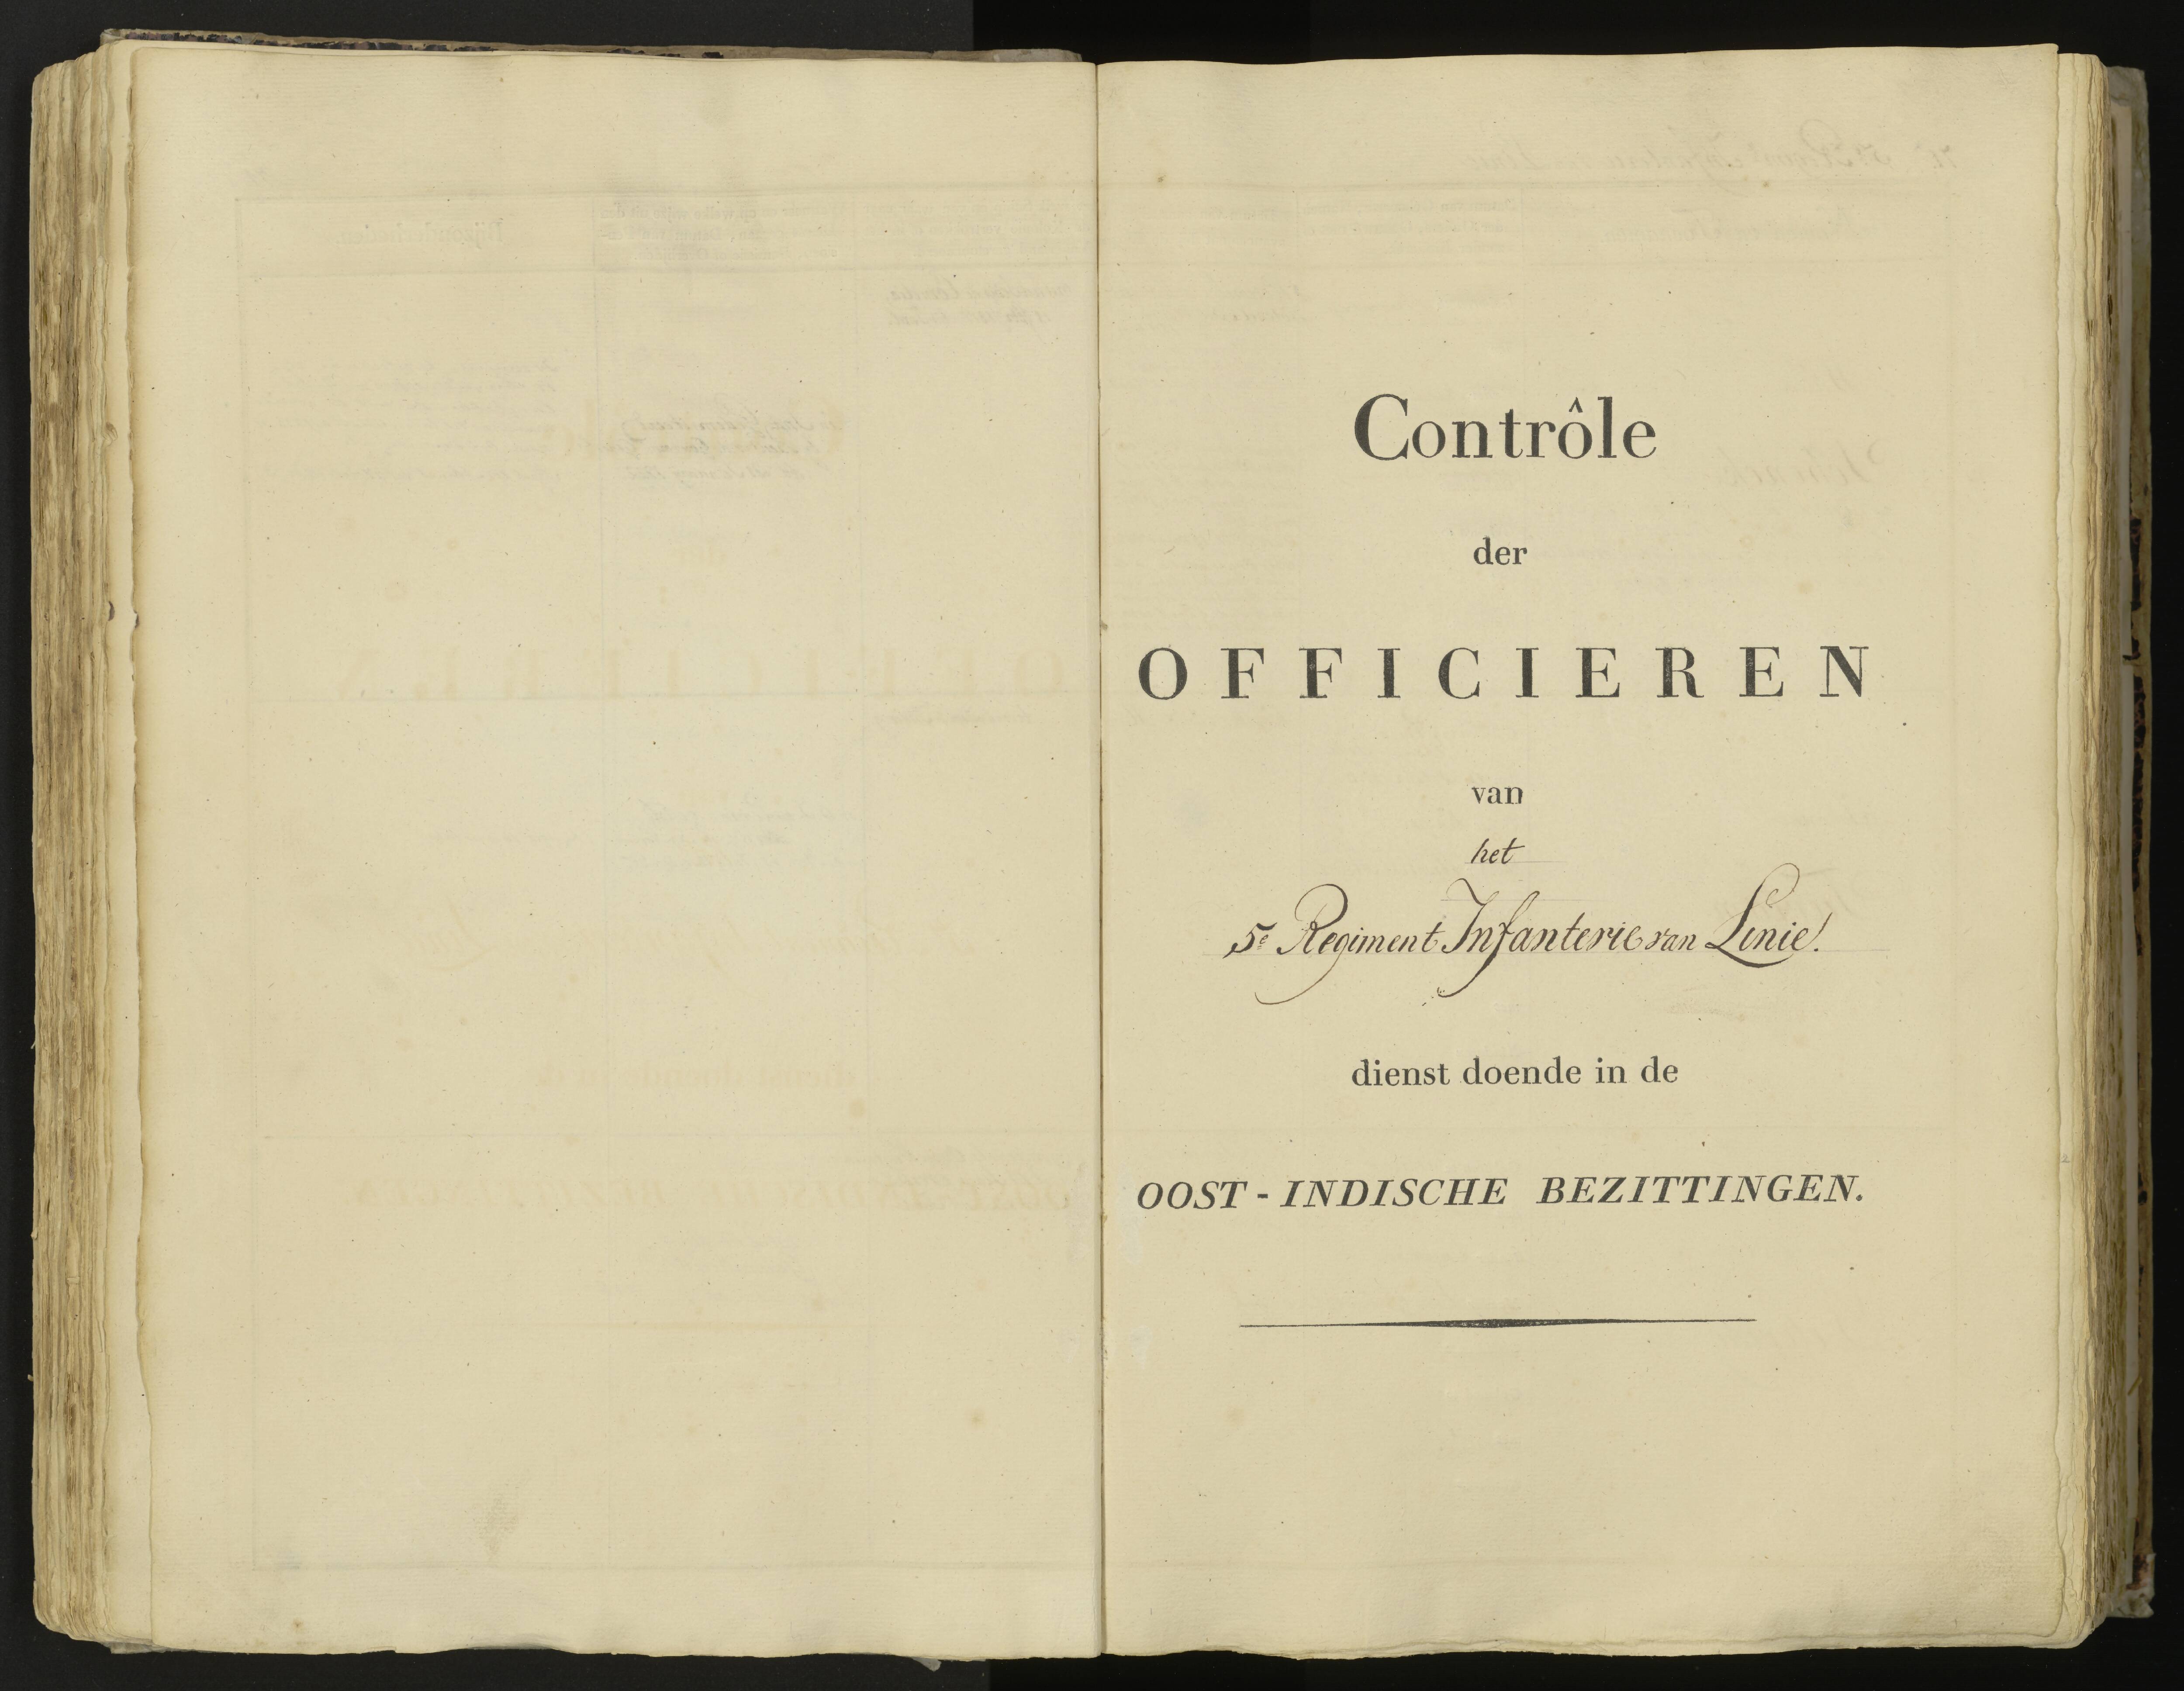 Contrôle
der
OFFICIEREN
van
het
5e Regiment Infanterie van Linie.
dienst doende in de
OOST-INDISCHE BEZITTINGEN.